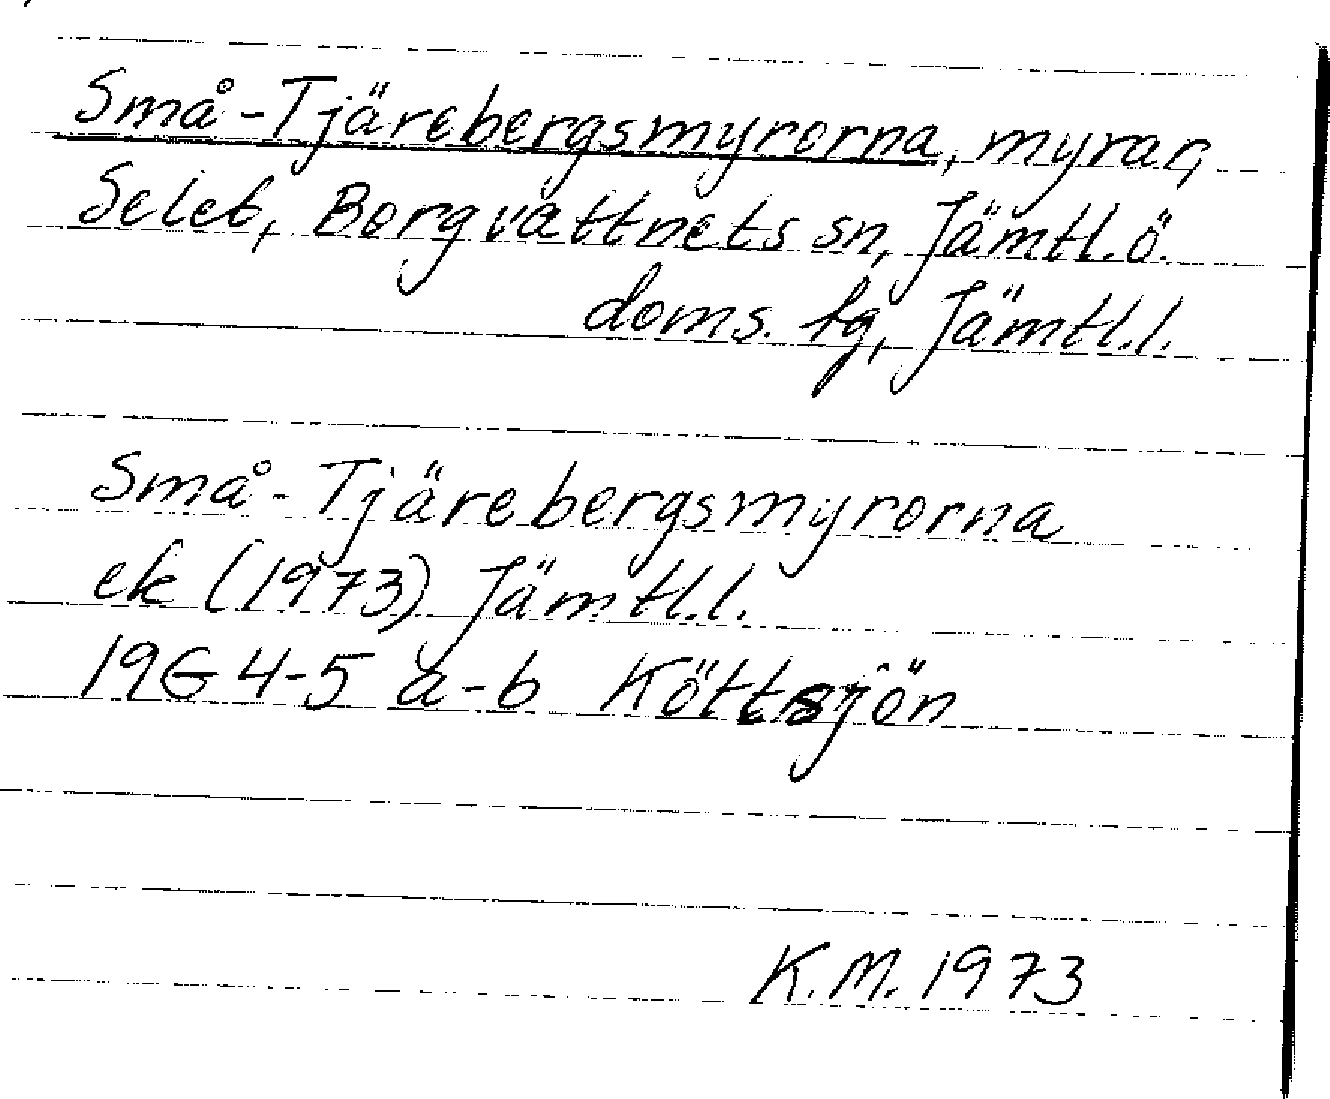 Små-Tjärebergsmyrorna, myrar,
Selet, Borgvattnets sn, Jämtl.ö.
doms. tg, Jämtl.l.
Små-Tjärebergsmyrorna
ek (1973) Jämtl.l.
19G 4-5 a-b Köttsjön
K.M. 1973